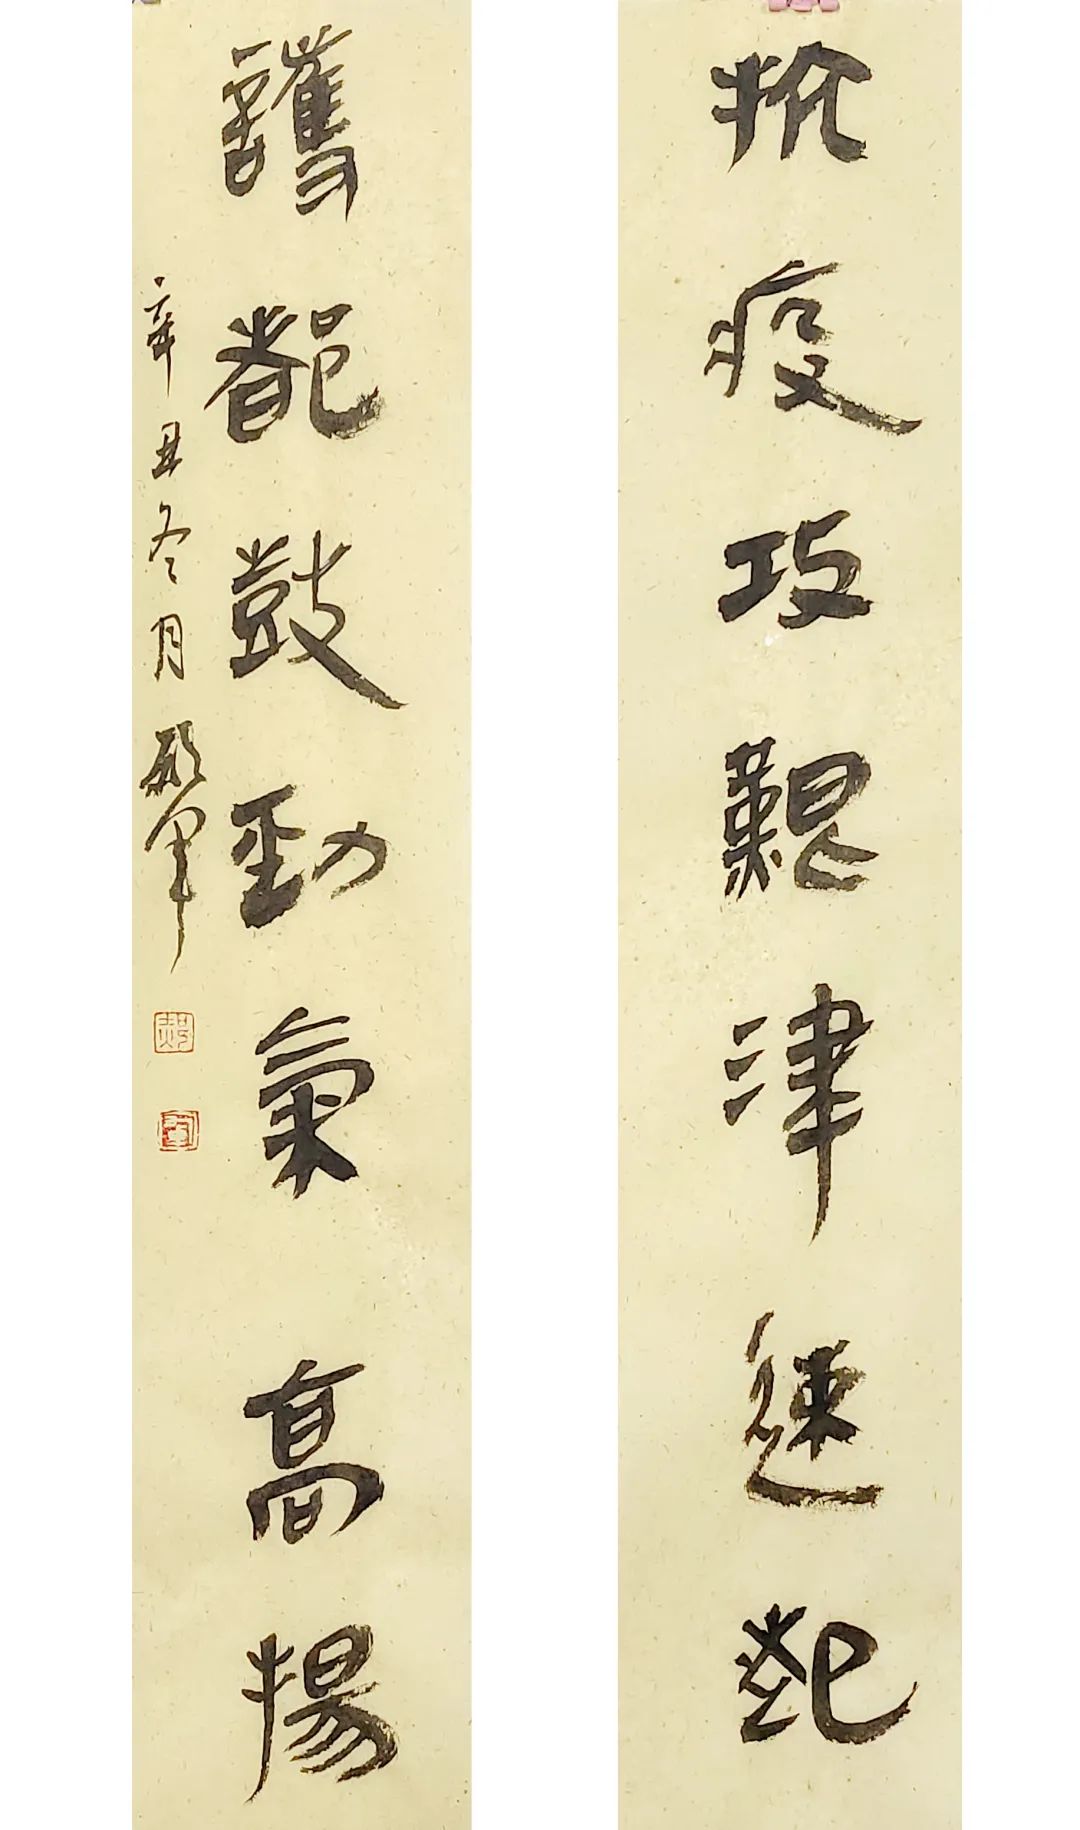 抗疫攻艱津速起
護都鼓勁氣高揚
辛丑冬月